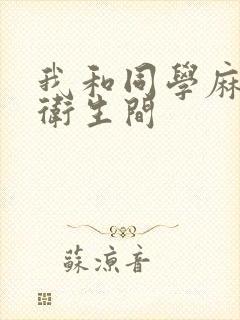 我和同學麻
衛生間
蘇涼音